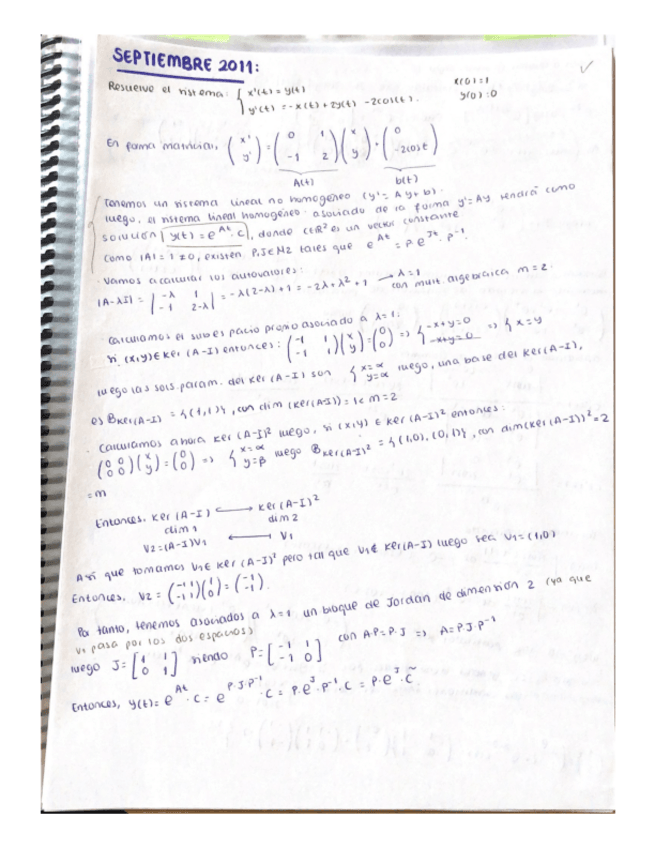 SEPTIEMBRE 2011:
Resuelve el sistema: { x'(t) = y(t)   x(0)=1
y'(t) = -x(t) + 2y(t) - 2cos(t).   y(0)=0
En forma matricial, (x' y') = (0 1 -1 2)(x y) + (0 -2cos t)
A(t) b(t)
Tenemos un sistema lineal no homogéneo (y' = Ay + b).
luego, el sistema lineal homogéneo asociado de la forma y' = Ay tendrá como
solución y(t) = e^{At}·c, donde c∈R² es un vector constante
Como |A| = 1 ≠ 0, existen P, J ∈ M2 tales que e^{At} = P·e^{Jt}·P^{-1}.
· Vamos a calcular los autovalores:
|A-λI| = |-λ 1 -1 2-λ| = -λ(2-λ)+1 = -2λ+λ²+1 → λ=1 con mult. algebraica m=2.
· Calculamos el subespacio propio asociado a λ=1:
si (x,y) ∈ Ker(A-I) entonces: (-1 1 -1 1)(x y) = (0 0) => { -x+y=0 -x+y=0 => { x=y
luego las sols. param. del Ker(A-I) son { x=α y=α luego, una base del Ker(A-I),
es B_{Ker(A-I)} = {(1,1)}, con dim(Ker(A-I)) = 1 < m = 2
· Calculamos ahora Ker(A-I)² luego, si (x,y) ∈ Ker(A-I)² entonces:
(0 0 0 0)(x y) = (0 0) => { x=α y=β luego B_{Ker(A-I)²} = {(1,0), (0,1)}, con dim(Ker(A-I))² = 2
= m
Entonces. Ker(A-I) ⟷ Ker(A-I)²
dim 1 dim 2
V2 = (A-I)V1 ⟵ V1
Así que tomamos V1 ∈ Ker(A-I)² pero tal que V1 ∉ Ker(A-I) luego sea V1 = (1,0)
Entonces, V2 = (-1 1 -1 1)(1 0) = (-1 -1).
Por tanto, tenemos asociados a λ=1 un bloque de Jordan de dimensión 2 (ya que
V1 pasa por los dos espacios)
luego J = [1 1 0 1] siendo P = [-1 1 -1 0] con A·P = P·J => A = P·J·P^{-1}
Entonces, y(t) = e^{At}·c = e^{P·J·P^{-1}}·c = P·e^{J}·P^{-1}·c = P·e^{J}·c̃